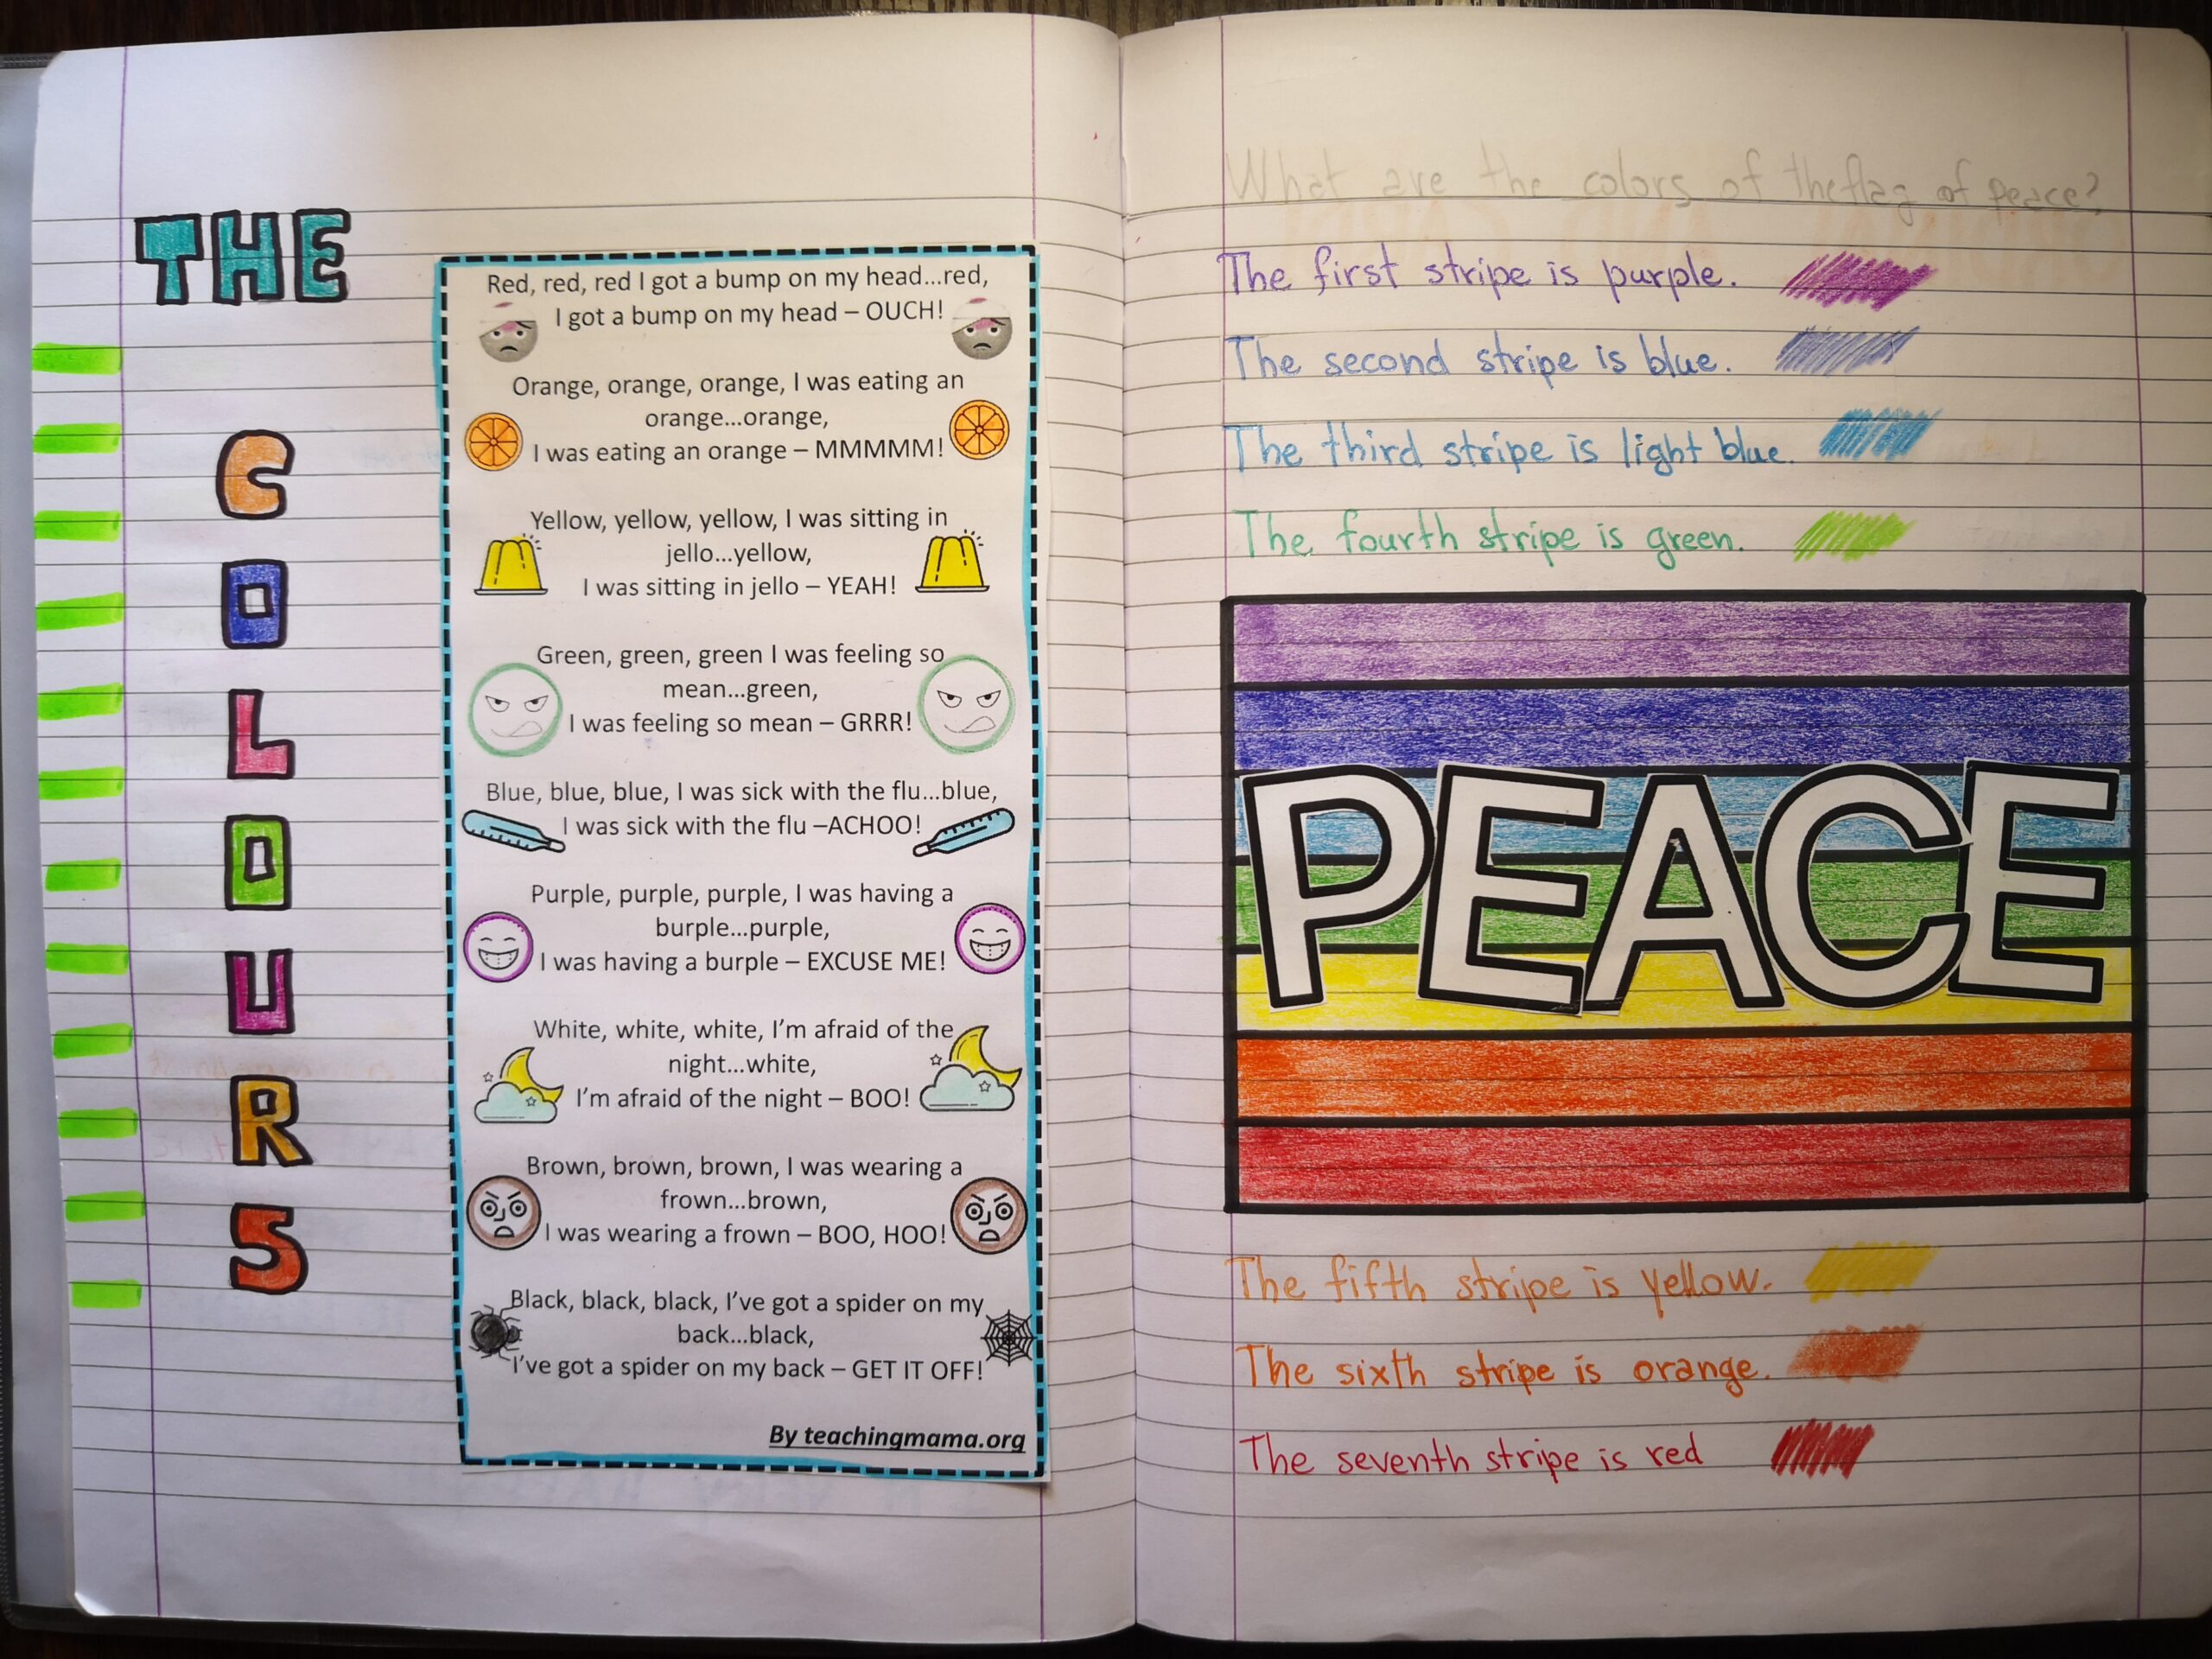 THE
COLOURS
Red, red, red I got a bump on my head...red,
I got a bump on my head – OUCH!
Orange, orange, orange, I was eating an
orange...orange,
I was eating an orange – MMMMM!
Yellow, yellow, yellow, I was sitting in
jello...yellow,
I was sitting in jello – YEAH!
Green, green, green I was feeling so
mean...green,
I was feeling so mean – GRRR!
Blue, blue, blue, I was sick with the flu...blue,
I was sick with the flu –ACHOO!
Purple, purple, purple, I was having a
burple...purple,
I was having a burple – EXCUSE ME!
White, white, white, I'm afraid of the
night...white,
I'm afraid of the night – BOO!
Brown, brown, brown, I was wearing a
frown...brown,
I was wearing a frown – BOO, HOO!
Black, black, black, I've got a spider on my
back...black,
I've got a spider on my back – GET IT OFF!
By teachingmama.org
What are the colors of the flag of peace?
The first stripe is purple.
The second stripe is blue.
The third stripe is light blue.
The fourth stripe is green.
PEACE
The fifth stripe is yellow.
The sixth stripe is orange.
The seventh stripe is red